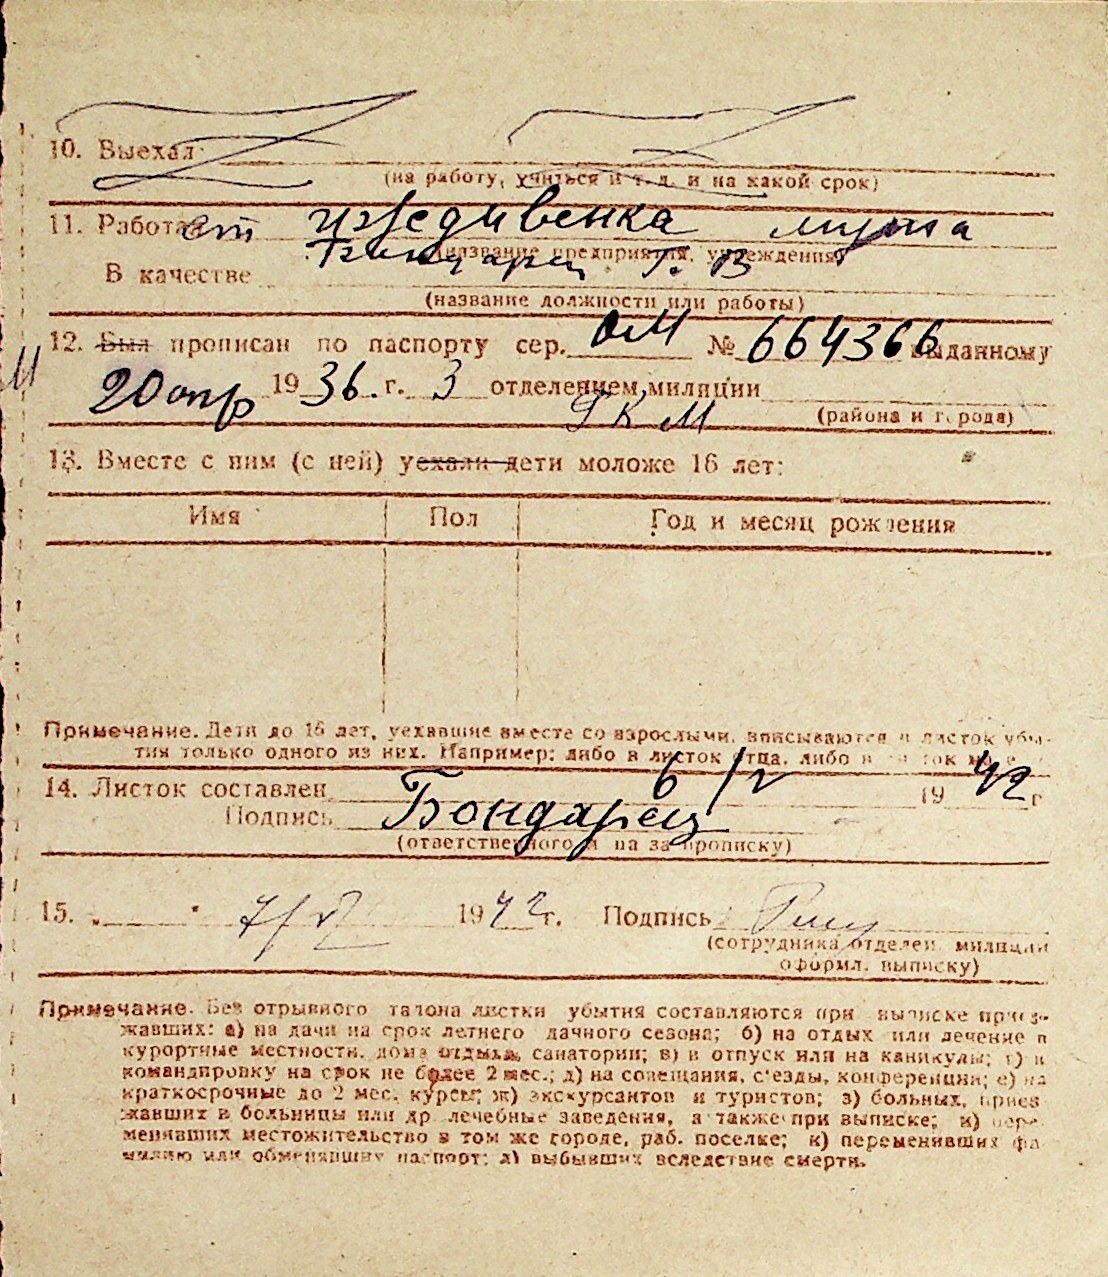 10. Выехал
(на работу, учиться и т. д. и на какой срок)
11. Работает иждивенка мужа
(название предприятия, учреждения)
Бондарец Г. В
В качестве
(название должности или работы)
12. Был прописан по паспорту сер. ОМ № 664366 выданному
20 апр 1936. г. 3 отделением милиции
ГКМ (района и города)
13. Вместе с ним (с ней) уехали дети моложе 16 лет:
Имя Пол Год и месяц рождения
Примечание. Дети до 16 лет, уехавшие вместе со взрослыми, вписываются в листок убы-
тия только одного из них. Например: либо в листок отца, либо в листок
14. Листок составлен 6/V 1942 г
Подпись Бондарец
(ответственного за прописку)
15. 7/V 1942 г. Подпись
(сотрудника отделен. милиции
оформл. выписку)
Примечание. Без отрывного талона листки убытия составляются при выписке приез-
жавших: а) на дачи на срок летнего дачного сезона; б) на отдых или лечение в
курортные местности, дома отдыха, санатории; в) в отпуск или на каникулы; г) в
командировку на срок не более 2 мес.; д) на совещания, с'езды, конференции; е) на
краткосрочные до 2 мес. курсы; ж) экскурсантов и туристов; з) больных, приез
жавших в больницы или др. лечебные заведения, а также при выписке; и) пере
менивших местожительство в том же городе, раб. поселке; к) переменивших фа
милию или обменявших паспорт; л) выбывших вследствие смерти.